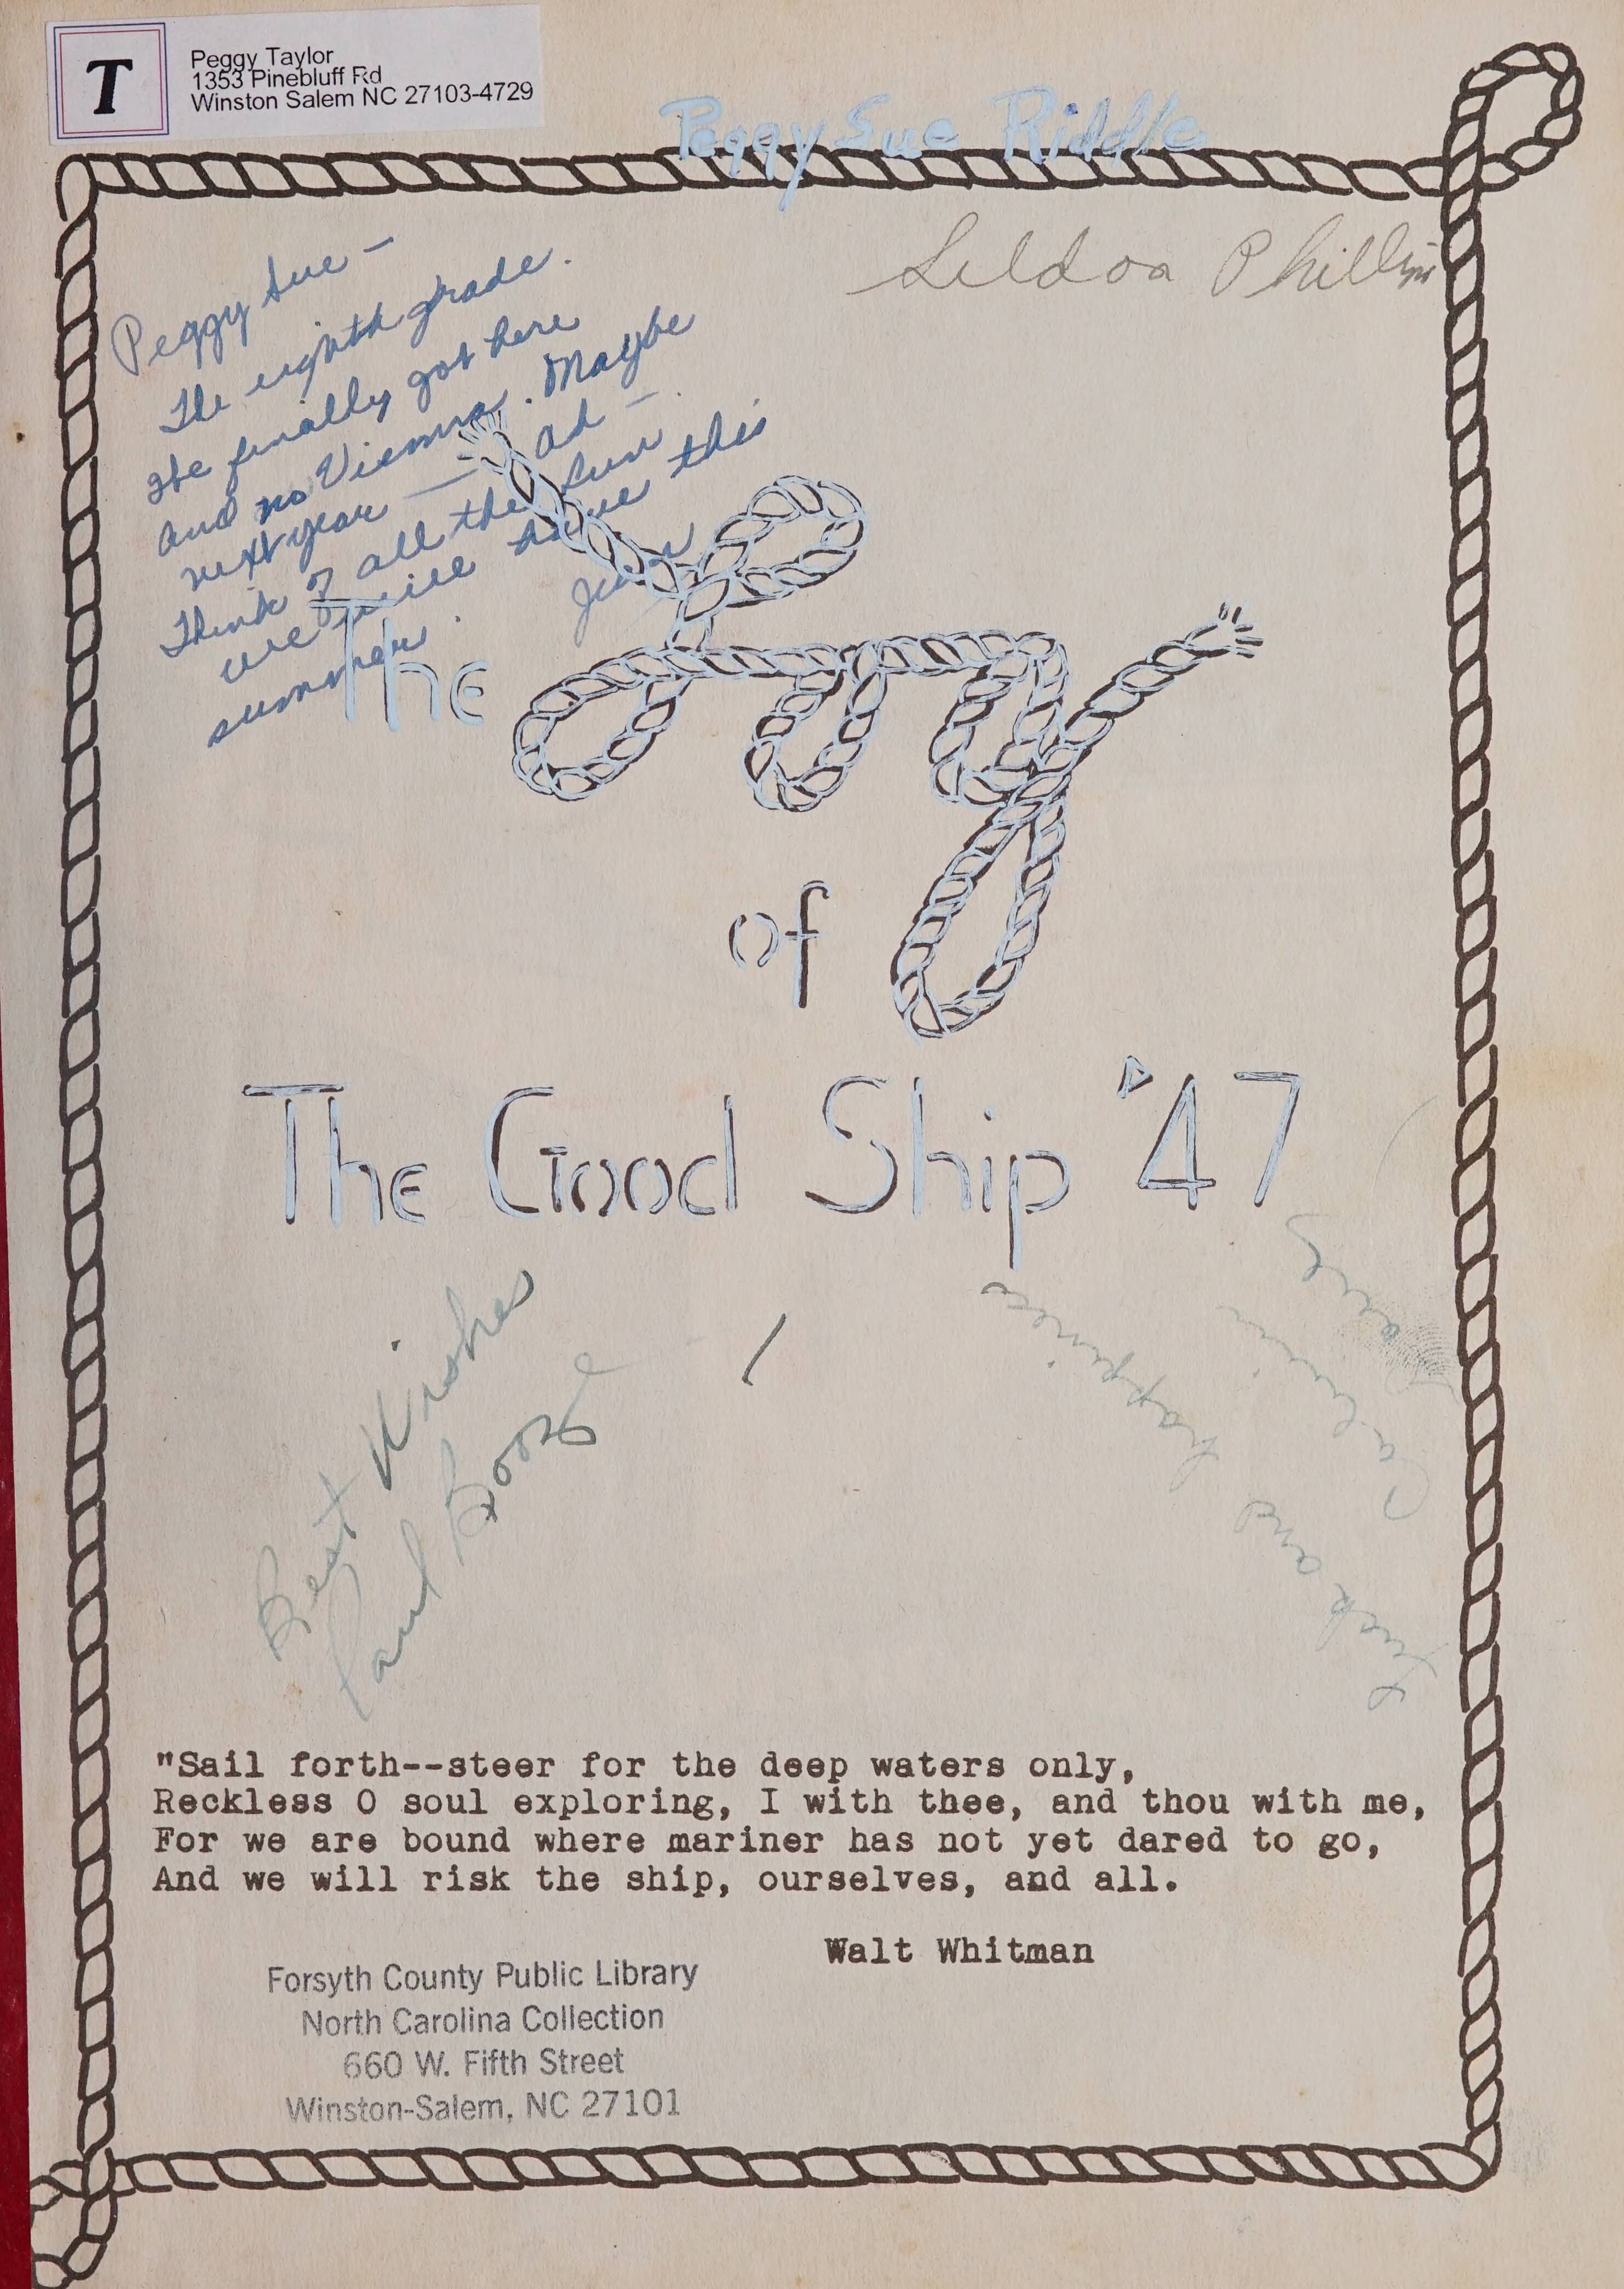 T
Peggy Taylor
1353 Pinebluff Rd
Winston Salem NC 27103-4729
Peggy Sue Riddle
Peggy Sue —
The eighth grade.
He finally got here
and no Vienna. Maybe
next year — ad —
Think of all the fun
we will have this
summer.
Phillips
The Log
of
The Good Ship '47
Best Wishes
Paul Booze
luck and happiness
"Sail forth--steer for the deep waters only,
Reckless O soul exploring, I with thee, and thou with me,
For we are bound where mariner has not yet dared to go,
And we will risk the ship, ourselves, and all.
Walt Whitman
Forsyth County Public Library
North Carolina Collection
660 W. Fifth Street
Winston-Salem, NC 27101